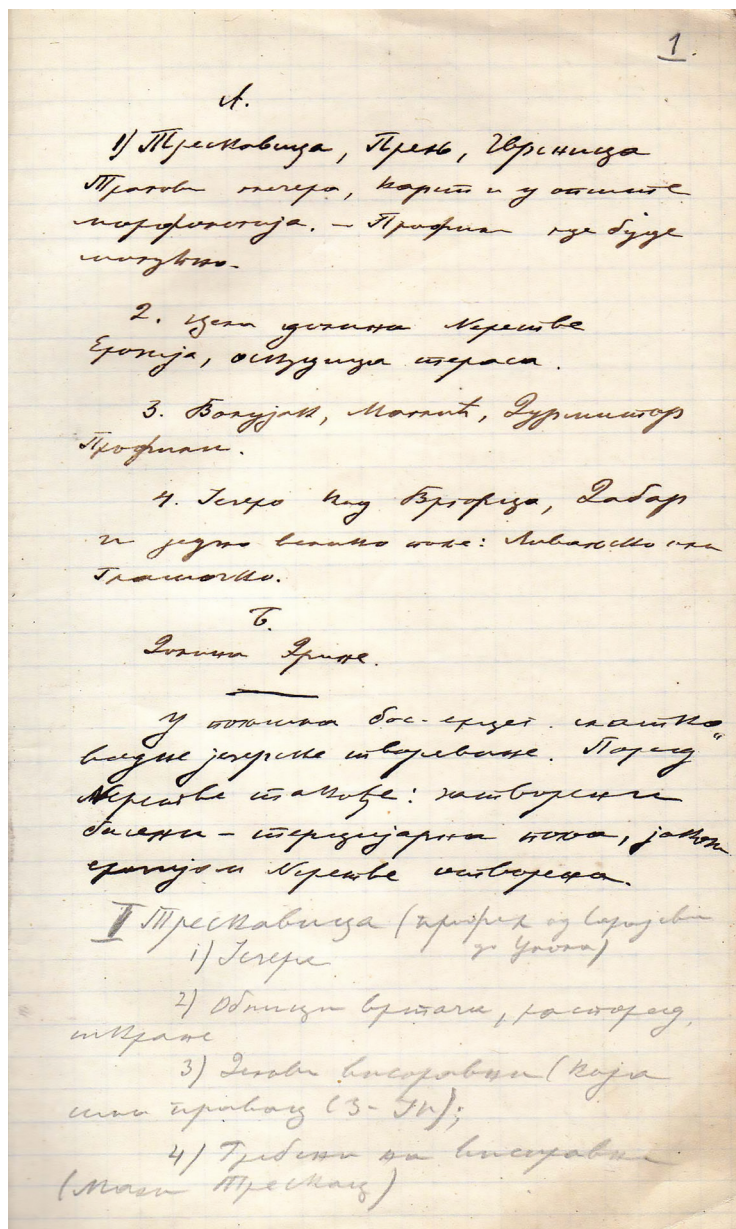 1.
А.
1) Тресковица, Прењ, Чврсница
Трагови глечера, карст и у опште
морфологија. – Профили где буде
могућно.
2. Цела долина Неретве
Ерозија, оскудица тераса.
3. Волујак, Маглић, Дурмитор
Профили.
4. Језеро код Вргорца, Дабар
и једно велико поље: Ливањско или
Гламочко.
Б.
Долина Дрине.
У пољима бос-херцег. слатко-
водне језерске творевине. Поред
Неретве такође: затворени
басени – терцијарна поља, јаком
ерозијом Неретве отворена.
I Тресковица (профил од Сарајева
до Улога)
1) Језера
2) Облици вртача, распоред,
шкрапе
3) Делови висоравни (која
има правац (З-ЈИ);
4) Гребени на висоравни
(Мали Трескац)